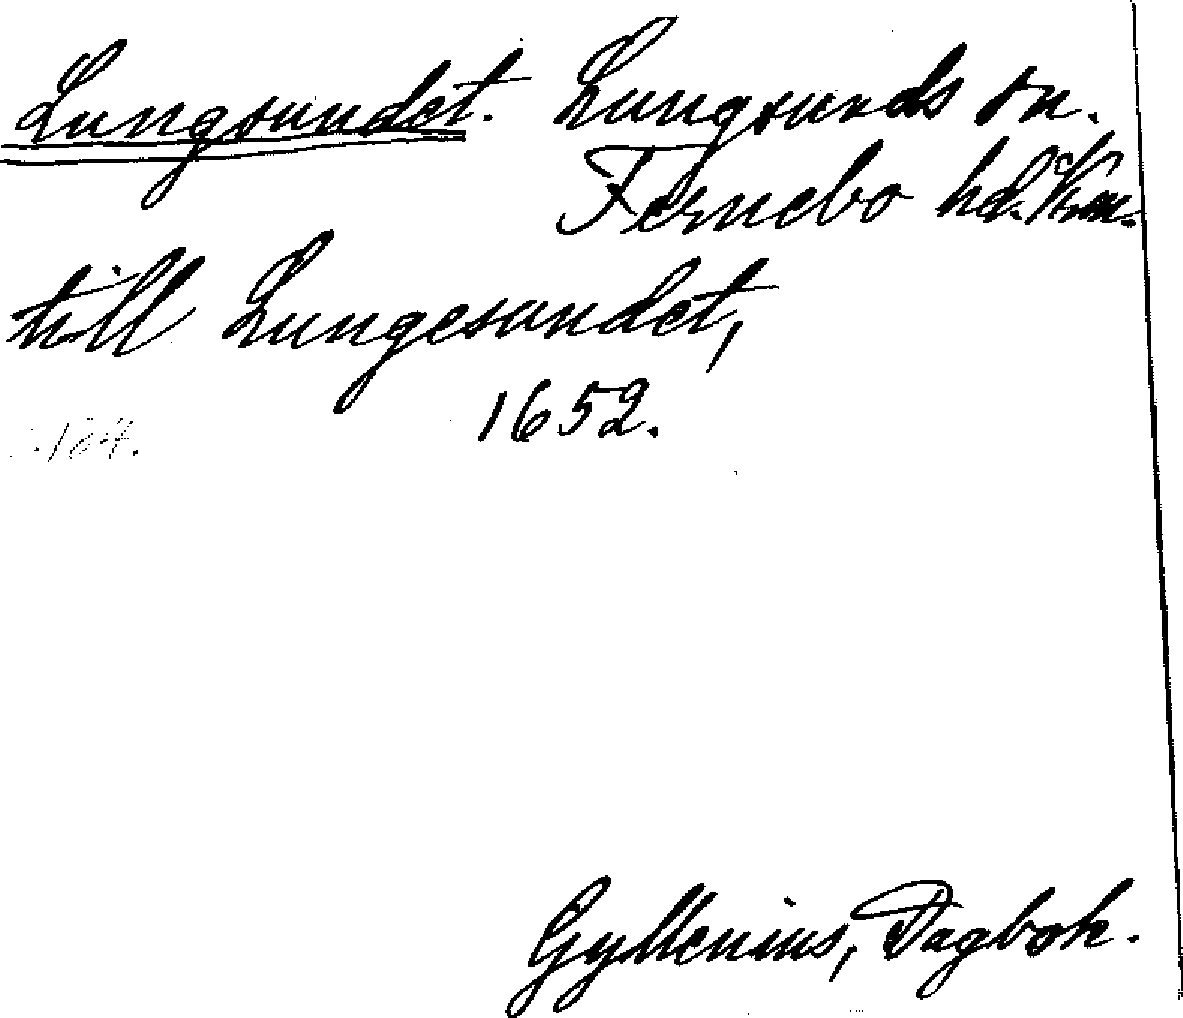 Lungsundet. Lungsunds sn.
Fernebo hd. Vrm.
till Lungesundet,
1652.
s. 124.
Gyllenius, Dagbok.